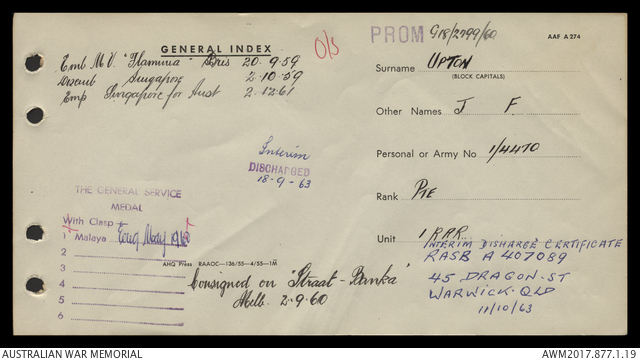 GENERAL INDEX
Emb M.V. "Flaminia" Bris 20.9.59
Disemb Singapore 2.10.59
Emp Singapore for Aust 2.12.61
O/S
PROM G18/2799/60
AAF A 274
Surname UPTON
(BLOCK CAPITALS)
Other Names J F.
Personal or Army No 1/4470
Rank PTE
Unit 1 RAR
INTERIM DISHARGE CERTIFICATE
RASB A 407089
45 DRAGON-ST
WARWICK-QLD
11/10/63
Interim
DISCHARGED
18-9-63
THE GENERAL SERVICE
MEDAL
With Clasp
1 Malaya 1960
2
3
4
5
6
AHQ Press RAAOC-136/55-4/55-1M
Consigned on "Straat-Banka"
Melb. 2.9.60
AUSTRALIAN WAR MEMORIAL
AWM2017.877.1.19